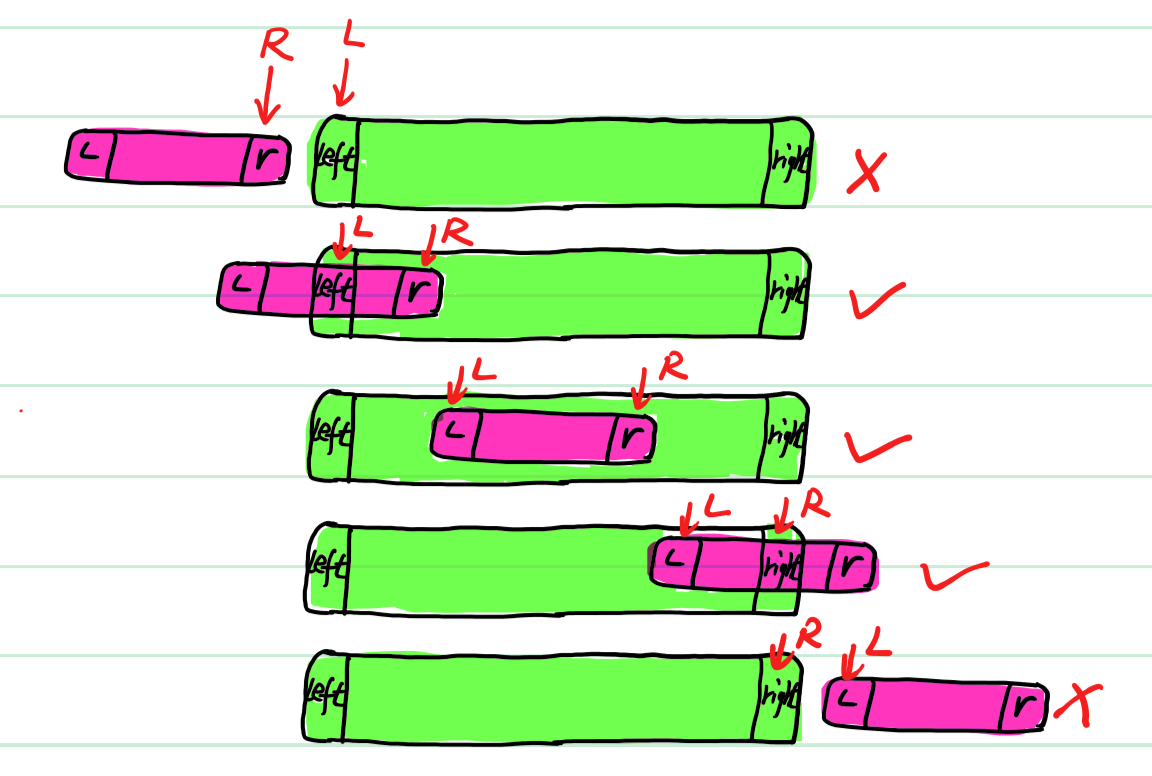 R L
L r left right X
L R
L left r right ✓
L R
left L r right ✓
L R
left L right r ✓
R L
left right L r X